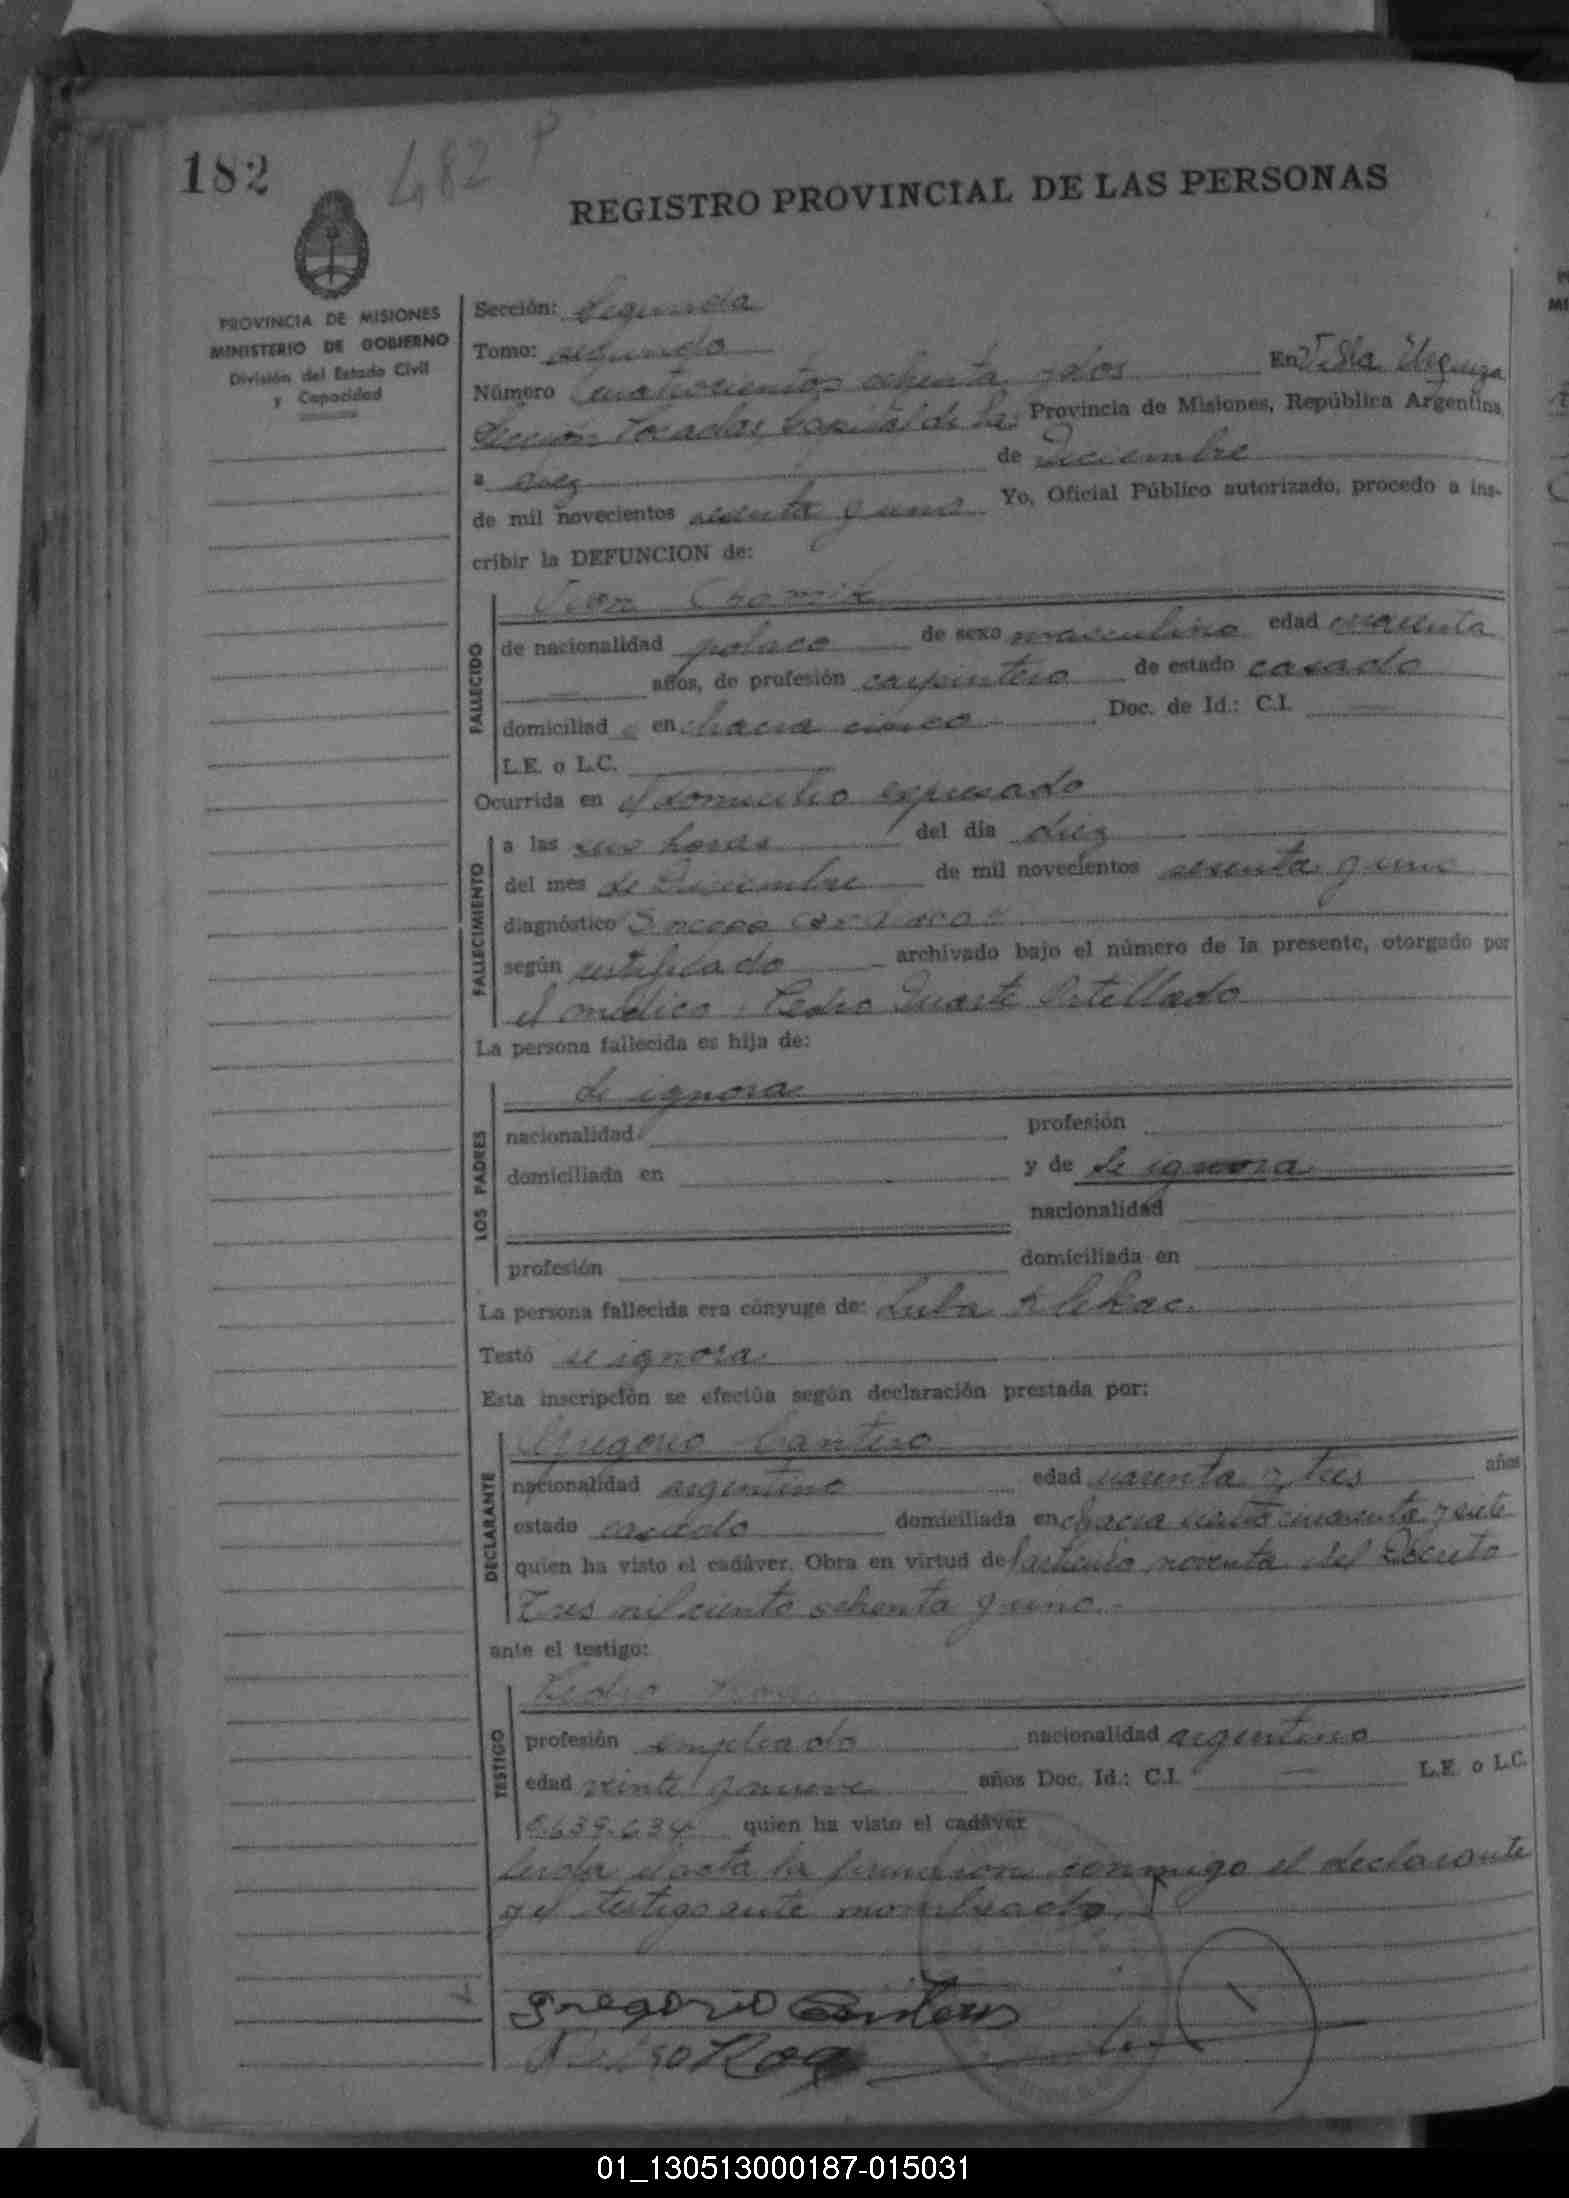 182
482 P
REGISTRO PROVINCIAL DE LAS PERSONAS
PROVINCIA DE MISIONES
MINISTERIO DE GOBIERNO
División del Estado Civil
y Capacidad
Sección: Segunda
Tomo: segundo
Número Cuatrocientos ochenta y dos En Villa Urquiza
Sección Posadas Capital de la Provincia de Misiones, República Argentina,
a diez de Diciembre
de mil novecientos sesenta y uno Yo, Oficial Público autorizado, procedo a ins-
cribir la DEFUNCION de:
FALLECIDO
Ivan Chomik
de nacionalidad polaco de sexo masculino edad cuarenta
años, de profesión carpintero de estado casado
domiciliad o en chacra cinco Doc. de Id.: C.I.
L.E. o L.C.
Ocurrida en el domicilio expresado
FALLECIMIENTO
a las seis horas del día diez
del mes de Diciembre de mil novecientos sesenta y uno
diagnóstico Sincope
según certificado archivado bajo el número de la presente, otorgado por
el médico Pedro Duarte Ortellado
La persona fallecida es hija de:
LOS PADRES
Se ignora
nacionalidad profesión
domiciliada en y de Se ignora
nacionalidad
profesión domiciliada en
La persona fallecida era cónyuge de: Luba
Testó se ignora
Esta inscripción se efectúa según declaración prestada por:
DECLARANTE
Gregorio Cantero
nacionalidad argentino edad cuarenta y tres años
estado casado domiciliada en chacra ciento cincuenta y siete
quien ha visto el cadáver. Obra en virtud del artículo noventa del Decreto
Tres mil ciento ochenta y uno.-
ante el testigo:
TESTIGO
Pedro Roa
profesión empleado nacionalidad argentino
edad veinte y nueve años Doc. Id.: C.I. — L.E. o L.C.
639.634 quien ha visto el cadáver
Leida el acta la firmaron conmigo el declarante
y el testigo ante nombrado.
Gregorio Cantero
Pedro Roa
01_130513000187-015031